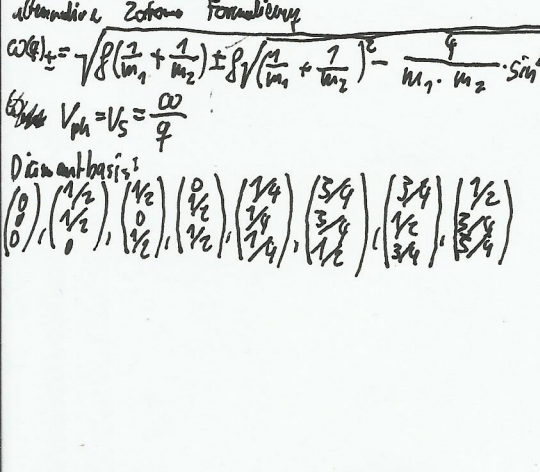 alternative 2atomare Formulierung
ω(q)± = √(f(1/m₁ + 1/m₂) ± f√((1/m₁ + 1/m₂)² − 4/(m₁·m₂)·sin²
V_ph = V_s = ω/q
Diamantbasis:
(0 0 0), (1/2 1/2 0), (1/2 0 1/2), (0 1/2 1/2), (1/4 1/4 1/4), (3/4 3/4 1/2), (3/4 1/2 3/4), (1/2 3/4 3/4)